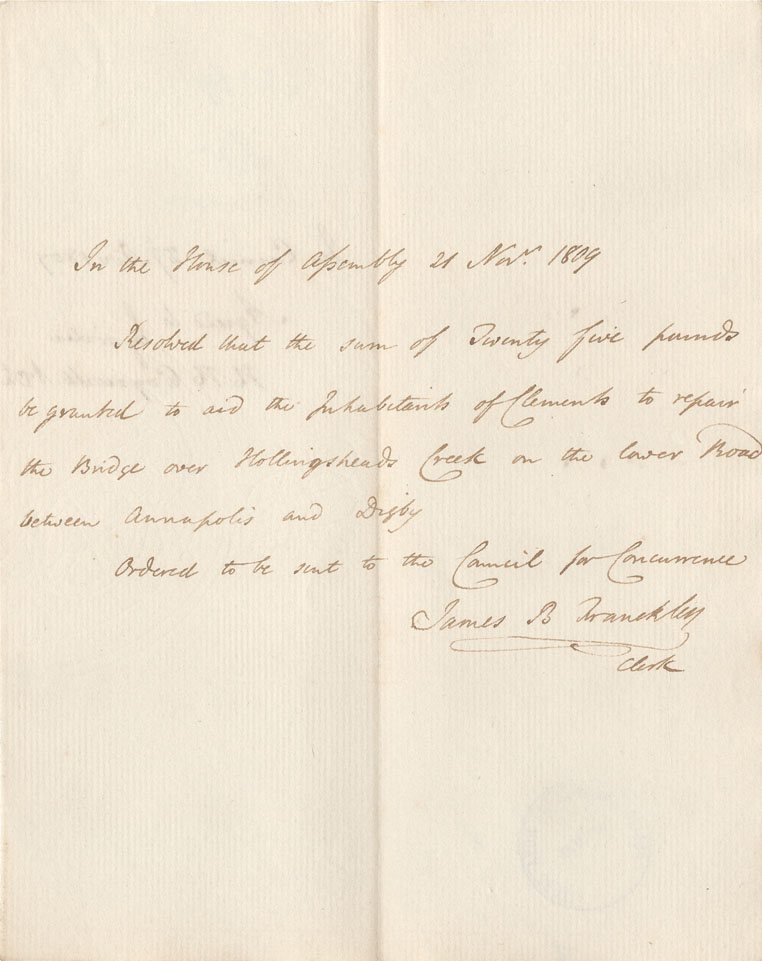 In the House of Assembly 21 Novr. 1809
Resolved that the sum of Twenty five pounds
be granted to aid the Inhabitants of Clements to repair
the Bridge over Hollingsheads Creek on the lower Road
between Annapolis and Digby
Ordered to be sent to the Council for Concurrence
James B Franckley
Clerk